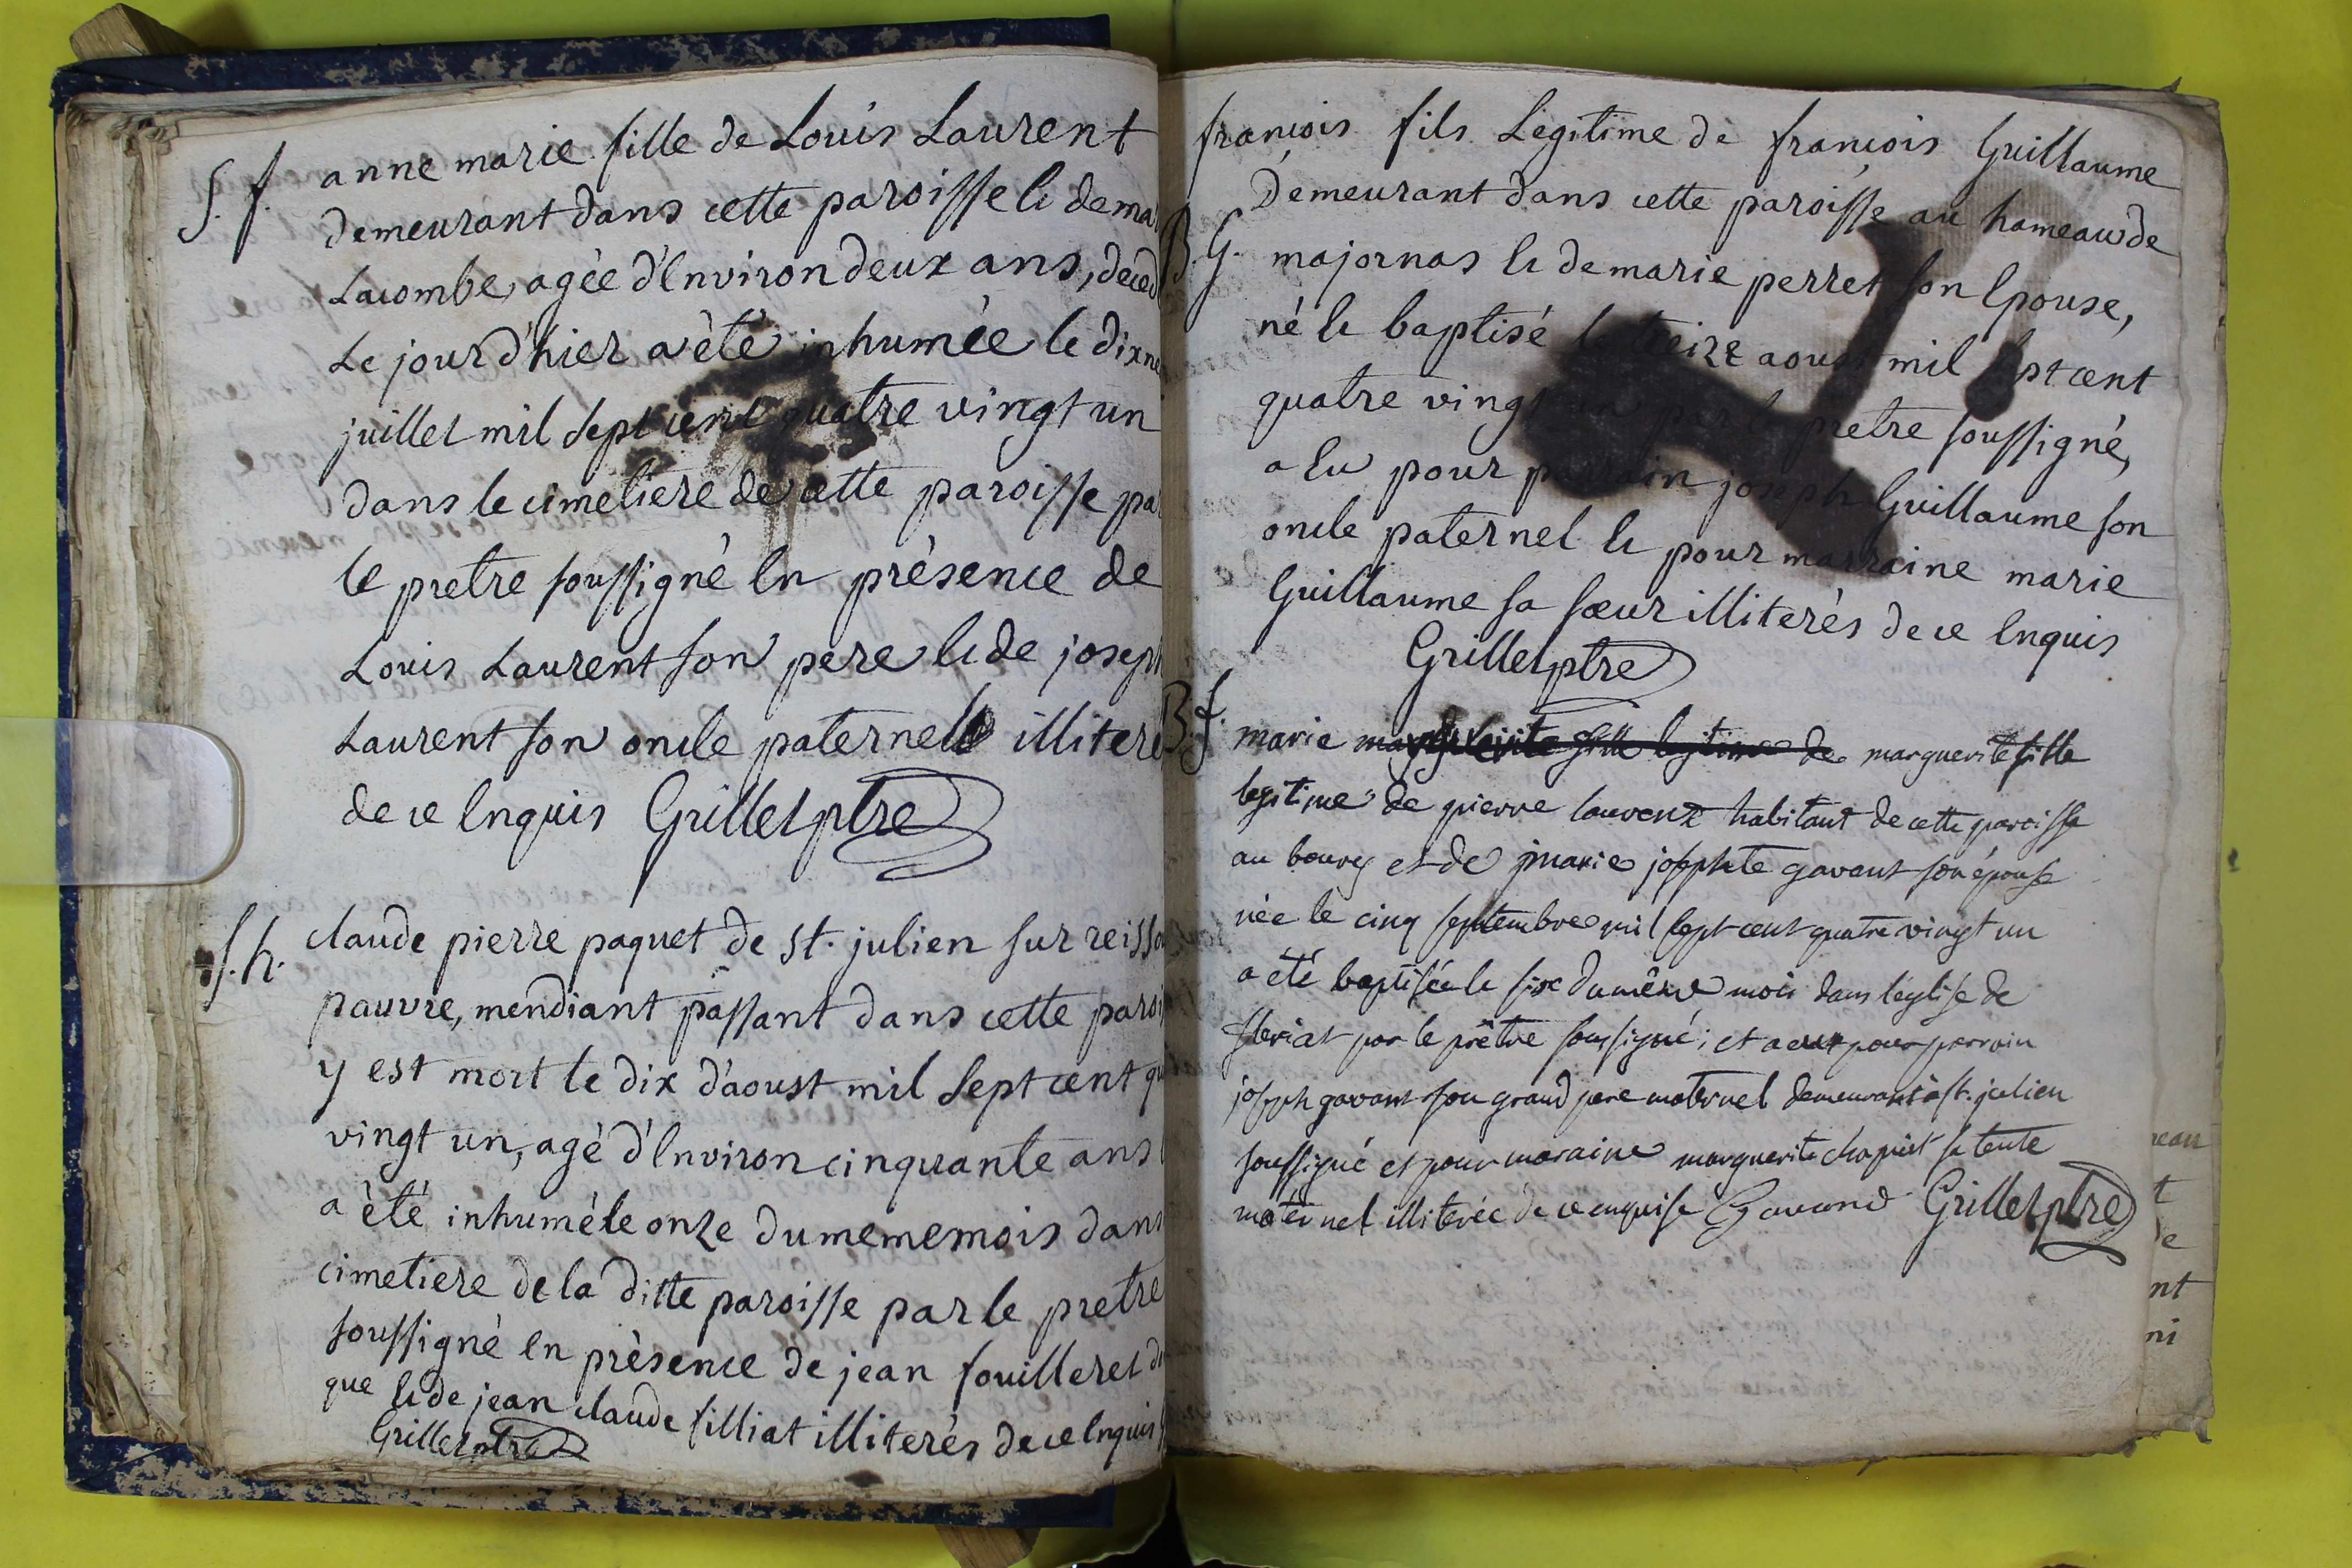 S. f. anne marie fille de Louis Laurent
demeurant dans cette paroisse et de ma
Lacombe, agée d'Environ deux ans, deced
Le jour d'hier a été inhumée le dixne
juillet mil sept cent quatre vingt un
dans le cimetiere de cette paroisse pa
le pretre soussigné En présence de
Louis Laurent son pere et de joseph
Laurent son oncle paternel illiteré
de ce Enquis Grillet ptre
S. h. claude pierre paquet de st. julien sur reisso
pauvre, mendiant passant dans cette paroi
y est mort le dix d'aoust mil sept cent qu
vingt un, agé d'Environ cinquante ans
a été inhumé le onze du meme mois dans
cimetiere de la ditte paroisse par le pretre
soussigné En présence de jean fouilleret du
que et de jean claude filliat illiterés de ce Enquis
Grillet ptre
françois fils Légitime de françois Guillaume
Demeurant dans cette paroisse au hameau de
B. G. majornas et de marie perret son Epouse,
né et baptisé le treize aoust mil sept cent
quatre vingt un par le pretre soussigné,
a Eu pour parrain joseph Guillaume son
oncle paternel et pour marraine marie
Guillaume sa sœur illiterés de ce Enquis
Grillet ptre
B f. marie marguerite fille legitime de marguerite fille
legitime de pierre laurent habitant de cette paroisse
au bourg et de marie josephte gavant son épouse
née le cinq septembre mil sept cent quatre vingt un
a été baptisée le six du même mois dans l'eglise de
fleriat par le prêtre soussigné; et a eut pour parrain
joseph gavant son grand pere maternel demeurant à st. julien
soussigné et pour maraine marguerite chapuit sa tente
maternel illiterée de ce enquise Gavand Grillet ptre
eau
t
de
nt
ni